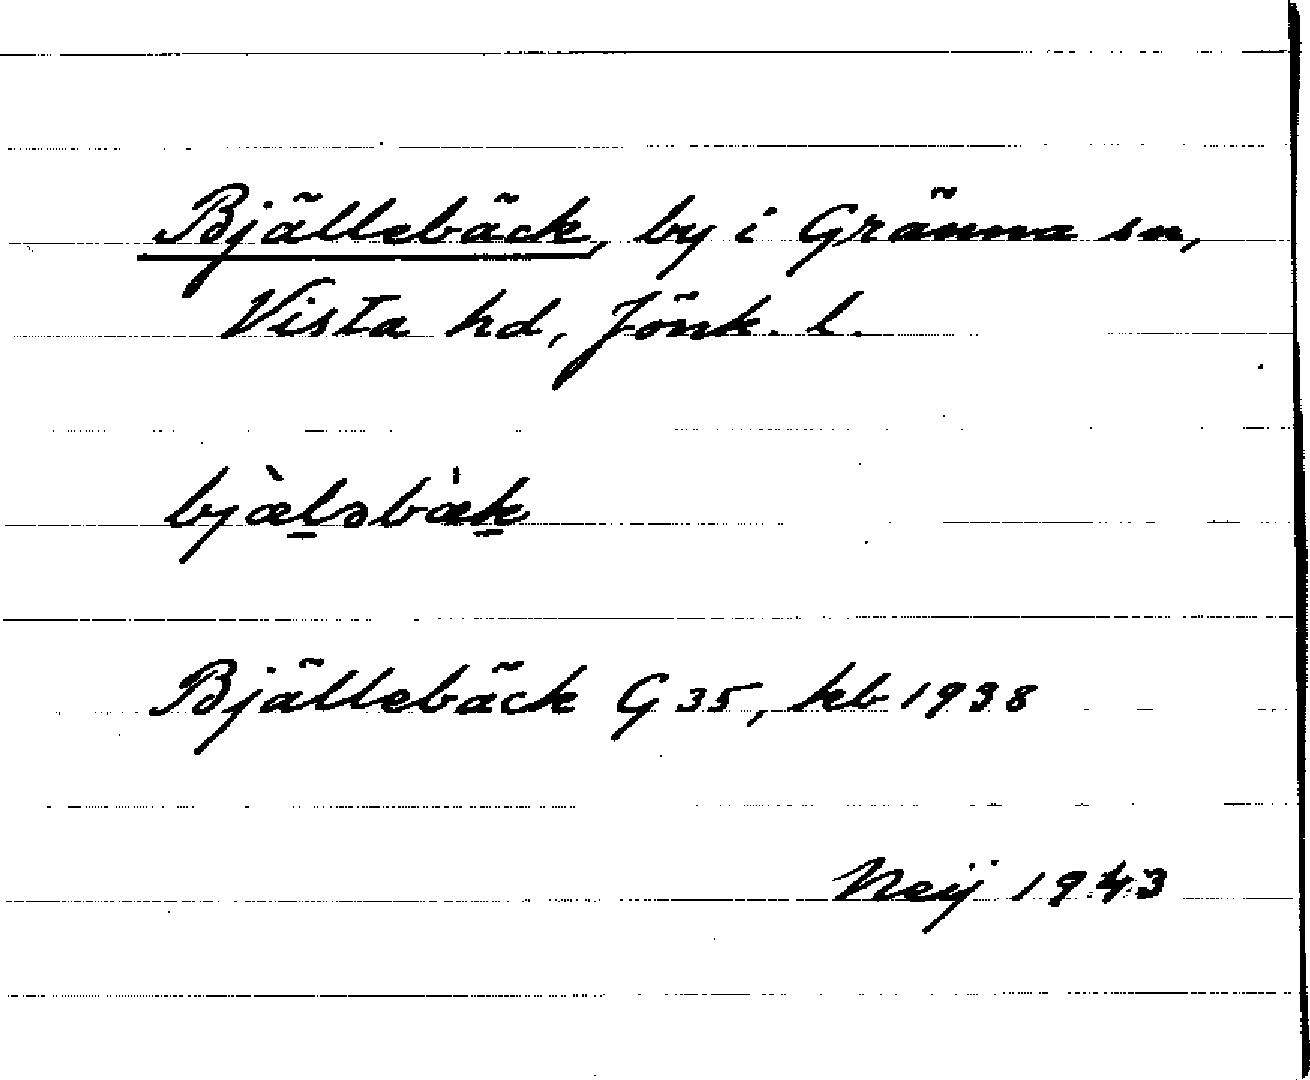 Bjällebäck, by i Gränna sn,
Vista hd, Jönk. l.
bjæ̀l̠əbæ̍k̠
Bjällebäck G 35, kb 1938
Neij 1943